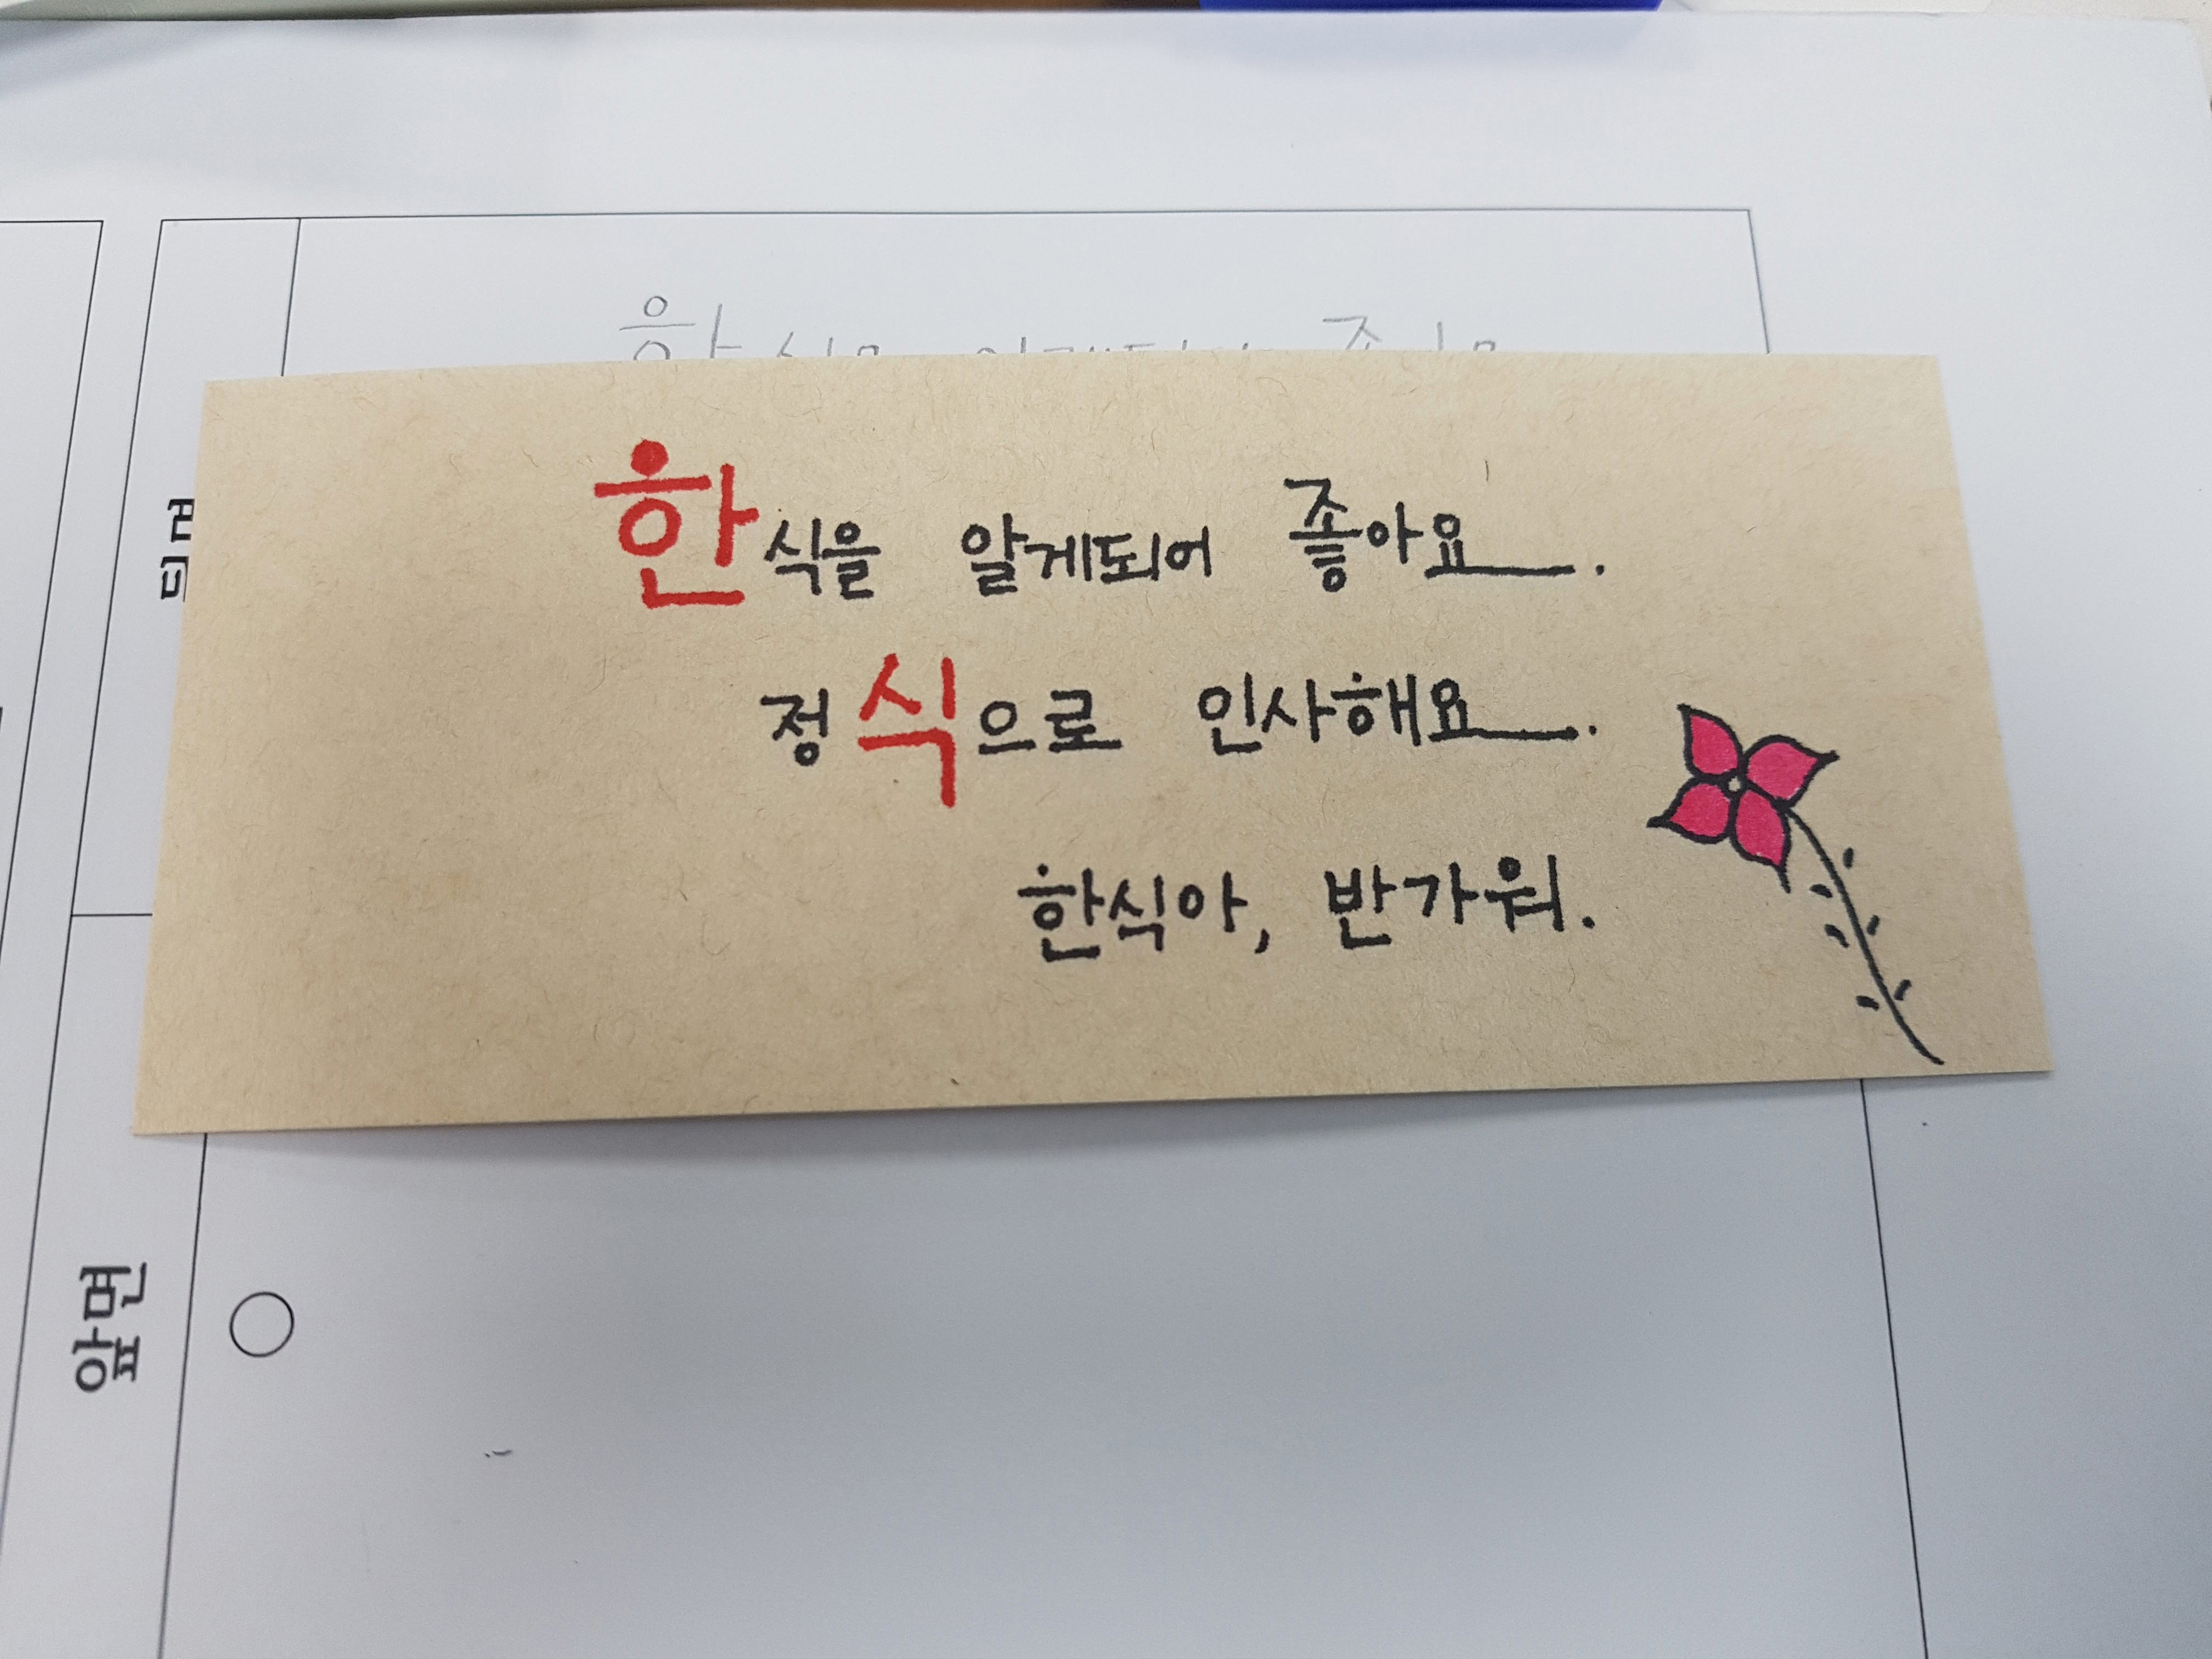 한식을 알게되어 좋아요.
정식으로 인사해요.
한식아, 반가워.
앞면